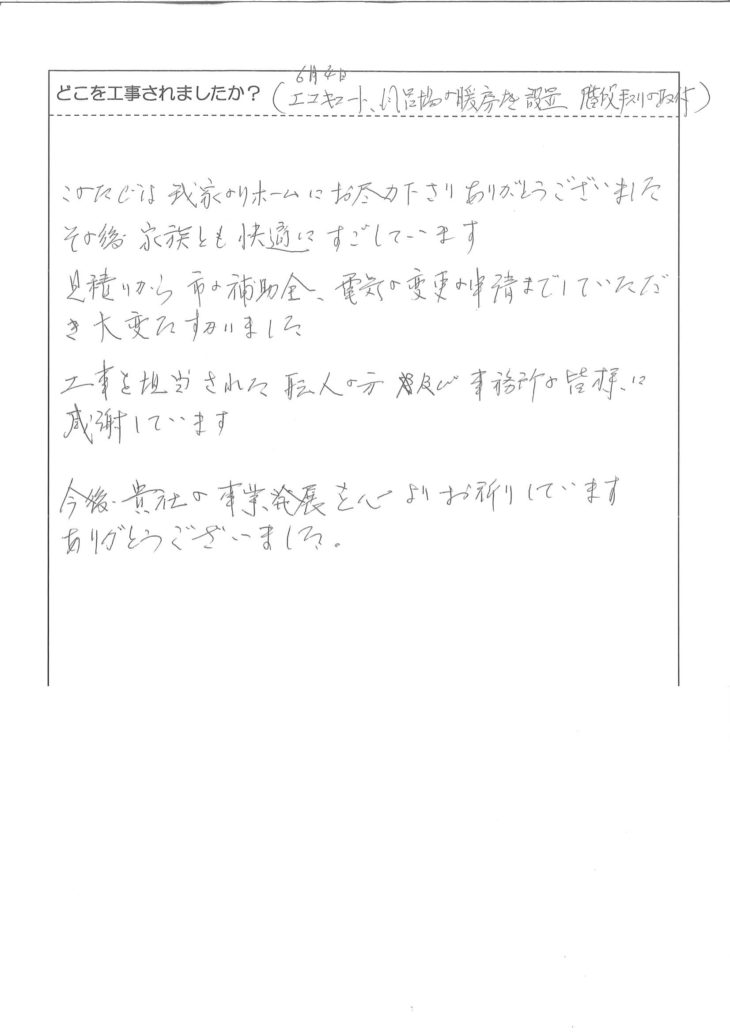 6月4日
どこを工事されましたか？（エコキュート、風呂場の暖房を設置 階段手スリの取付）
このたびは 我家のリホームにお尽力下さり ありがとうございました
その後 家族とも 快適に すごしています
見積りから 市の補助金、電気の変更の申請までしていただ
き大変たすかりました
工事を担当された 職人の方 及び 事務所の皆様に
感謝しています
今後 貴社の事業発展を心よりお祈りしています
ありがとうございました。